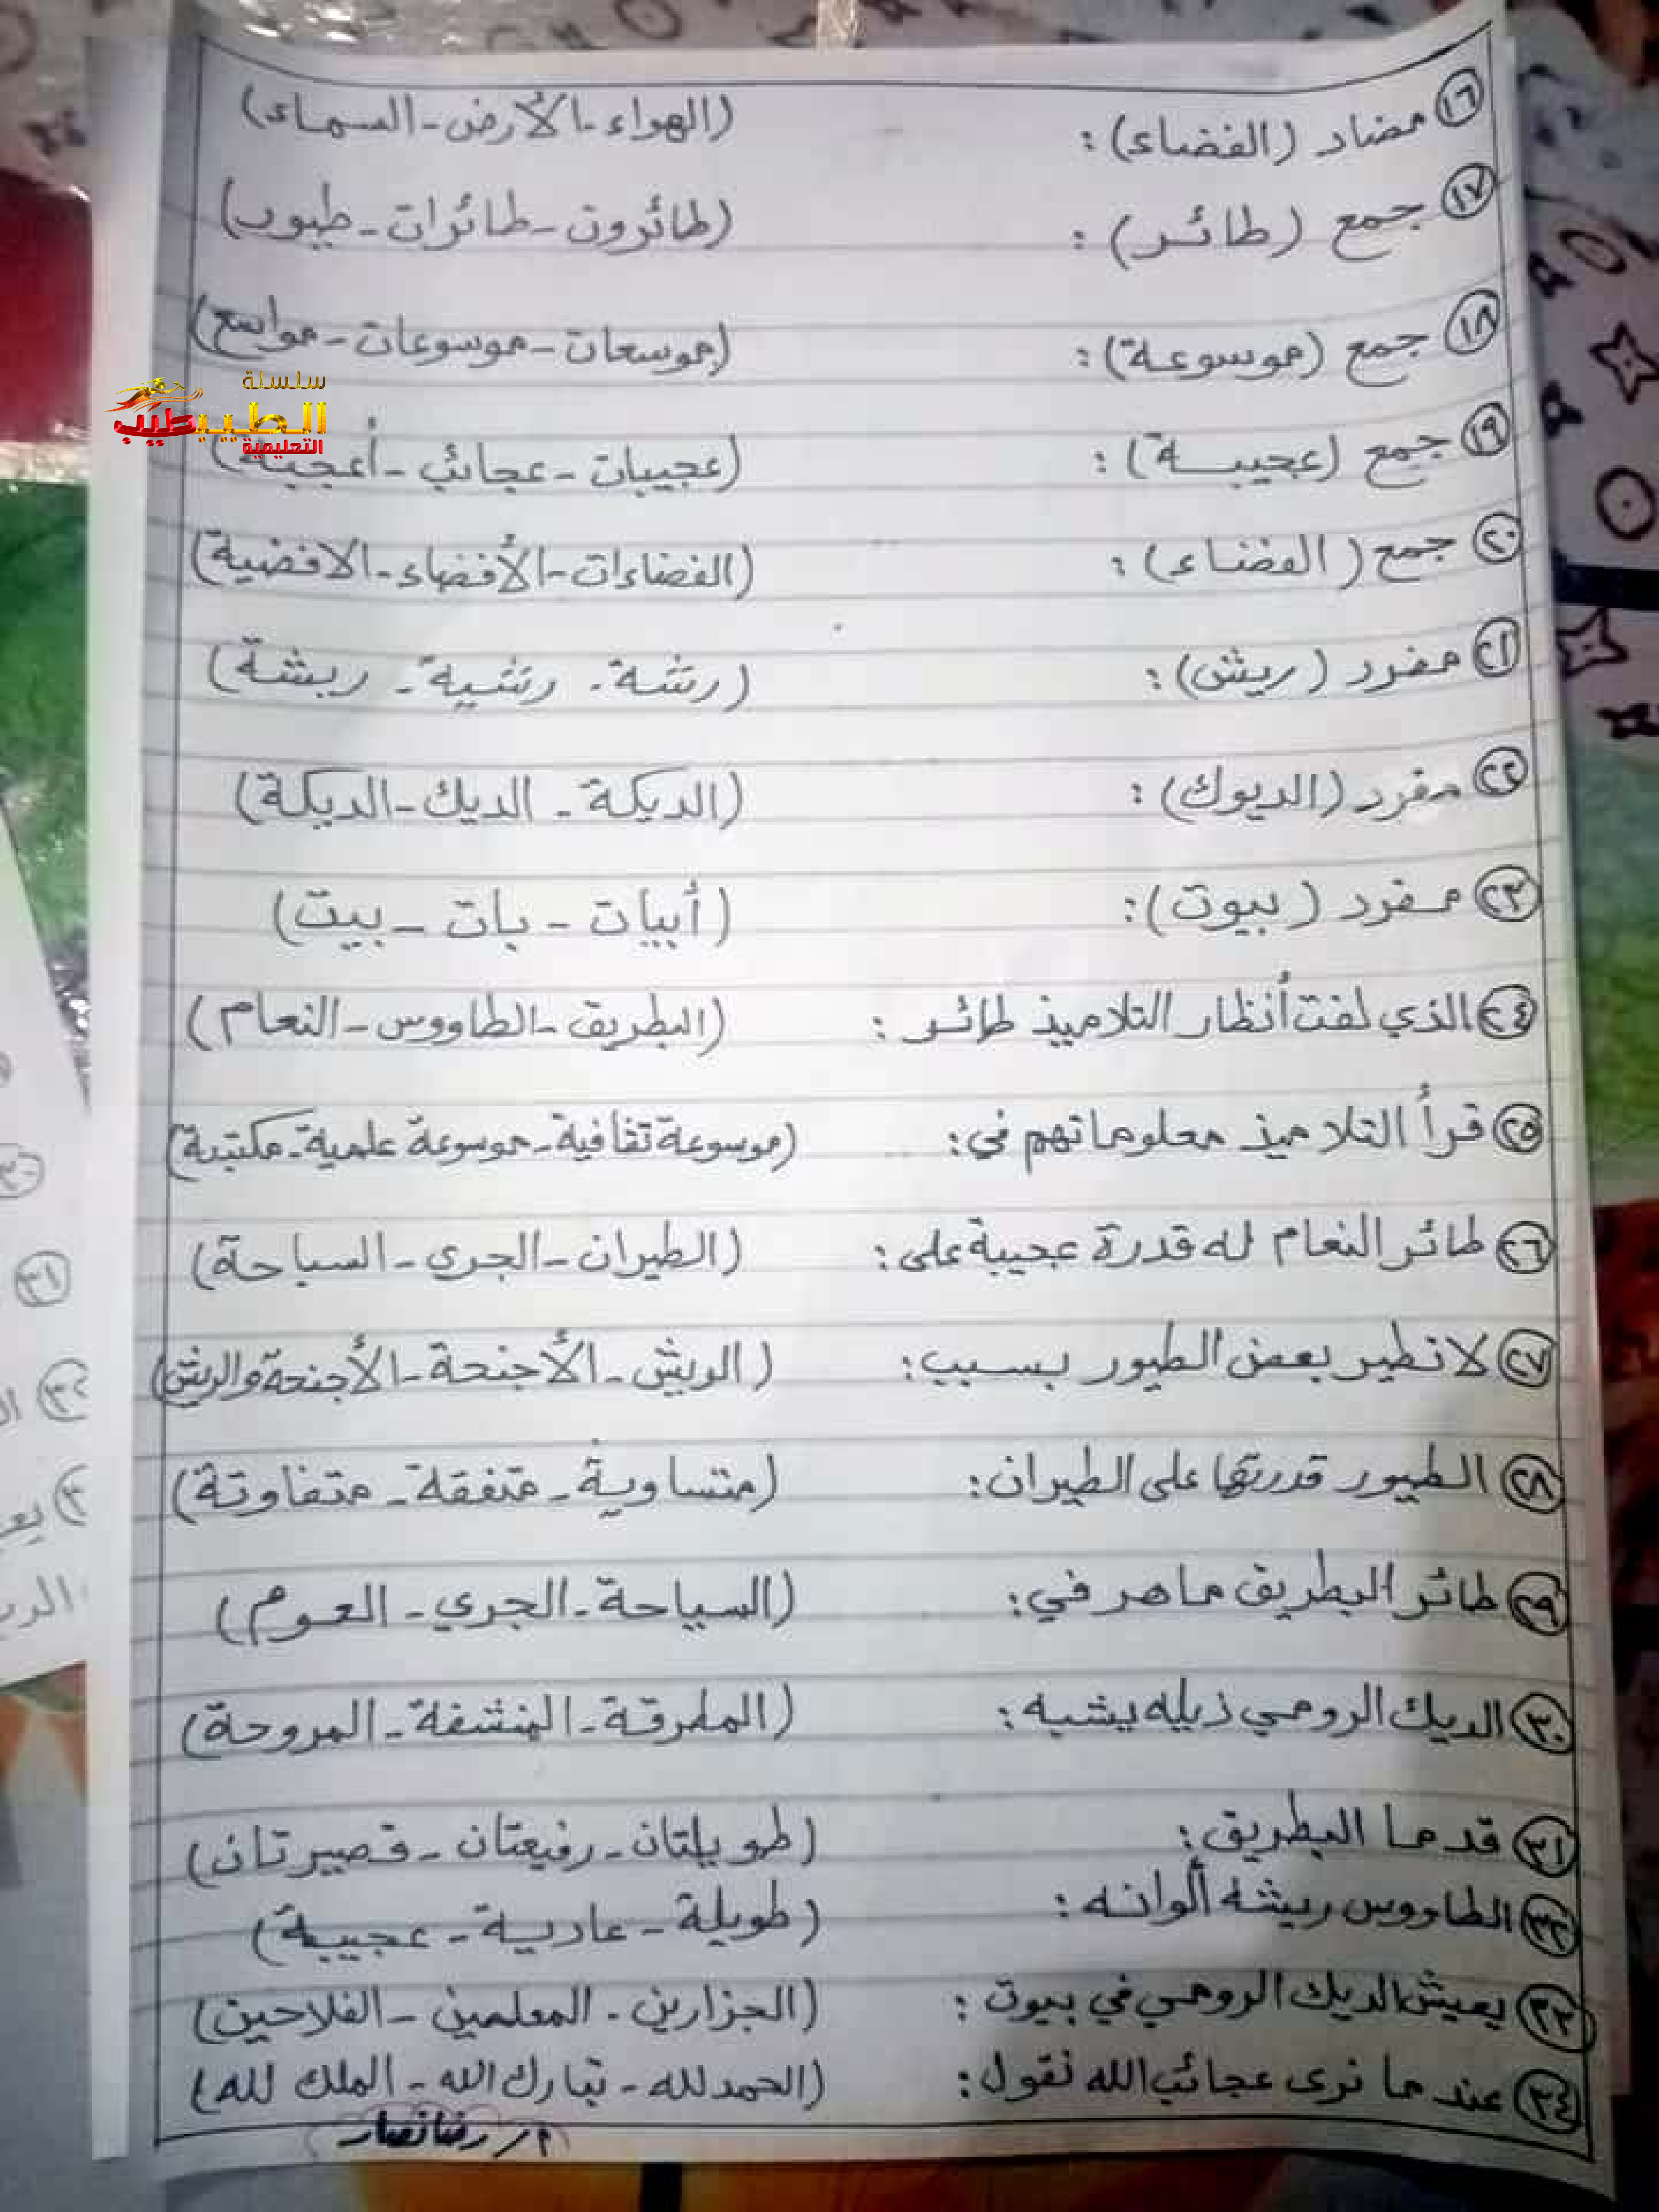 ١٦ مضاد (الفضاء): (الهواء - الأرض - السماء)
١٧ جمع (طائر): (طائرون - طائرات - طيور)
١٨ جمع (موسوعة): (موسعات - موسوعات - مواسع)
سلسلة
الطبيب
التعليمية
١٩ جمع (عجيبة): (عجيبات - عجائب - أعجبة)
٢٠ جمع (الفضاء): (الفضاءات - الأفضاء - الافضية)
٢١ مفرد (ريش): (رشة - رشية - ريشة)
٢٢ مفرد (الديوك): (الديكة - الديك - الديكة)
٢٣ مفرد (بيوت): (أبيات - بات - بيت)
٢٤ الذي لفت أنظار التلاميذ طائر: (البطريق - الطاووس - النعام)
٢٥ قرأ التلاميذ معلوماتهم في: (موسوعة ثقافية - موسوعة علمية - مكتبة)
٢٦ طائر النعام له قدرة عجيبة على: (الطيران - الجرى - السباحة)
٢٧ لا تطير بعض الطيور بسبب: (الريش - الأجنحة - الأجنحة والريش)
٢٨ الطيور قدرتها على الطيران: (متساوية - متفقة - متفاوتة)
٢٩ طائر البطريق ماهر في: (السياحة - الجري - العوم)
٣٠ الديك الرومي ذيله يشبه: (المطرقة - المنشفة - المروحة)
٣١ قدما البطريق: (طويلتان - رفيعتان - قصيرتان)
٣٢ الطاووس ريشه ألوانه: (طويلة - عادية - عجيبة)
٣٣ يعيش الديك الرومي في بيوت: (الجزارين - المعلمين - الفلاحين)
٣٤ عندما نرى عجائب الله نقول: (الحمد لله - تبارك الله - الملك لله)
٣٠
٣١
٣٢